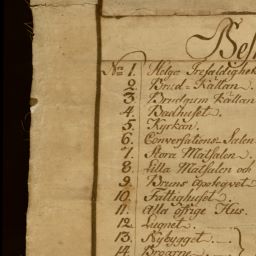 Bes
No 1. Helga Trefaldighets
2. Brud-Källan.
3. Brudgum Källan
4. Badhuset.
5. Kyrkan.
6. Conversations-Salen
7. Stora Matsalen.
8. Lilla Matsalen och
9. Bruns Apoteqvet
10. Fattighuset.
11. Alla öfrige Hus.
12. Lugnet.
13. Nybygget.
14. Broarne